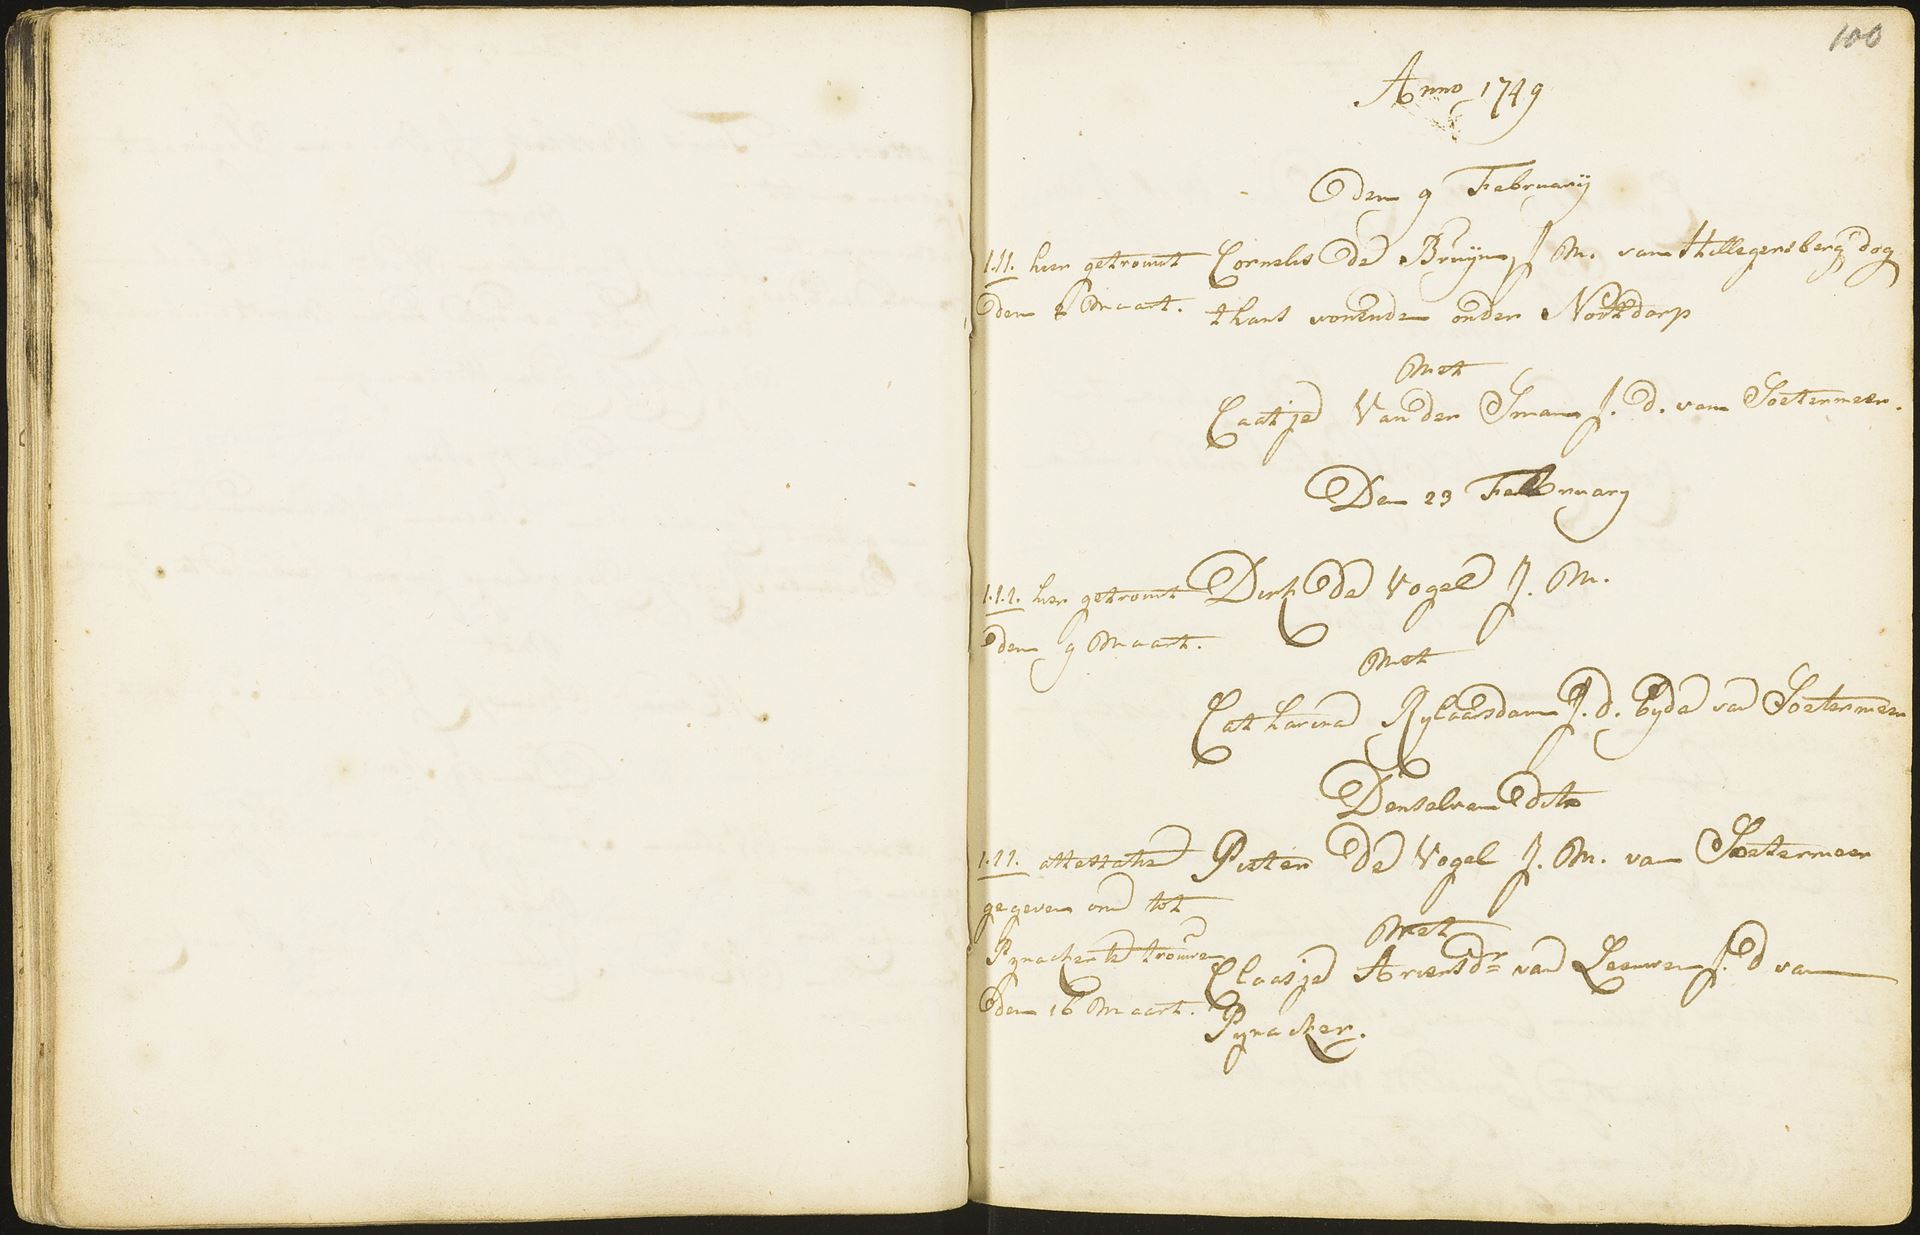 100
Anno 1749
den 9 February
1.1.1. hier getrouwt Cornelis de Bruyn J. M. van Hillegersberg dog
den Maart. thans wonende onder Nootdorp
Met
Caatje Van der Sman J. d. van Soetermeer.
Den 23 February
1.1.1. hier getrouwt Dirk de Vogel J. M.
den 9 Maart.
Met
Catharina Rylaarsdam J. d. byde van Soetermeer
Denselven dito
1.1.1. attestatie Pieter de Vogel J. M. van Soetermeer
gegeven om tot
Met
Pynacker te trouwen Claasje Ariensdr van Leeuwen J. d van
den 16 Maart. Pynacker.